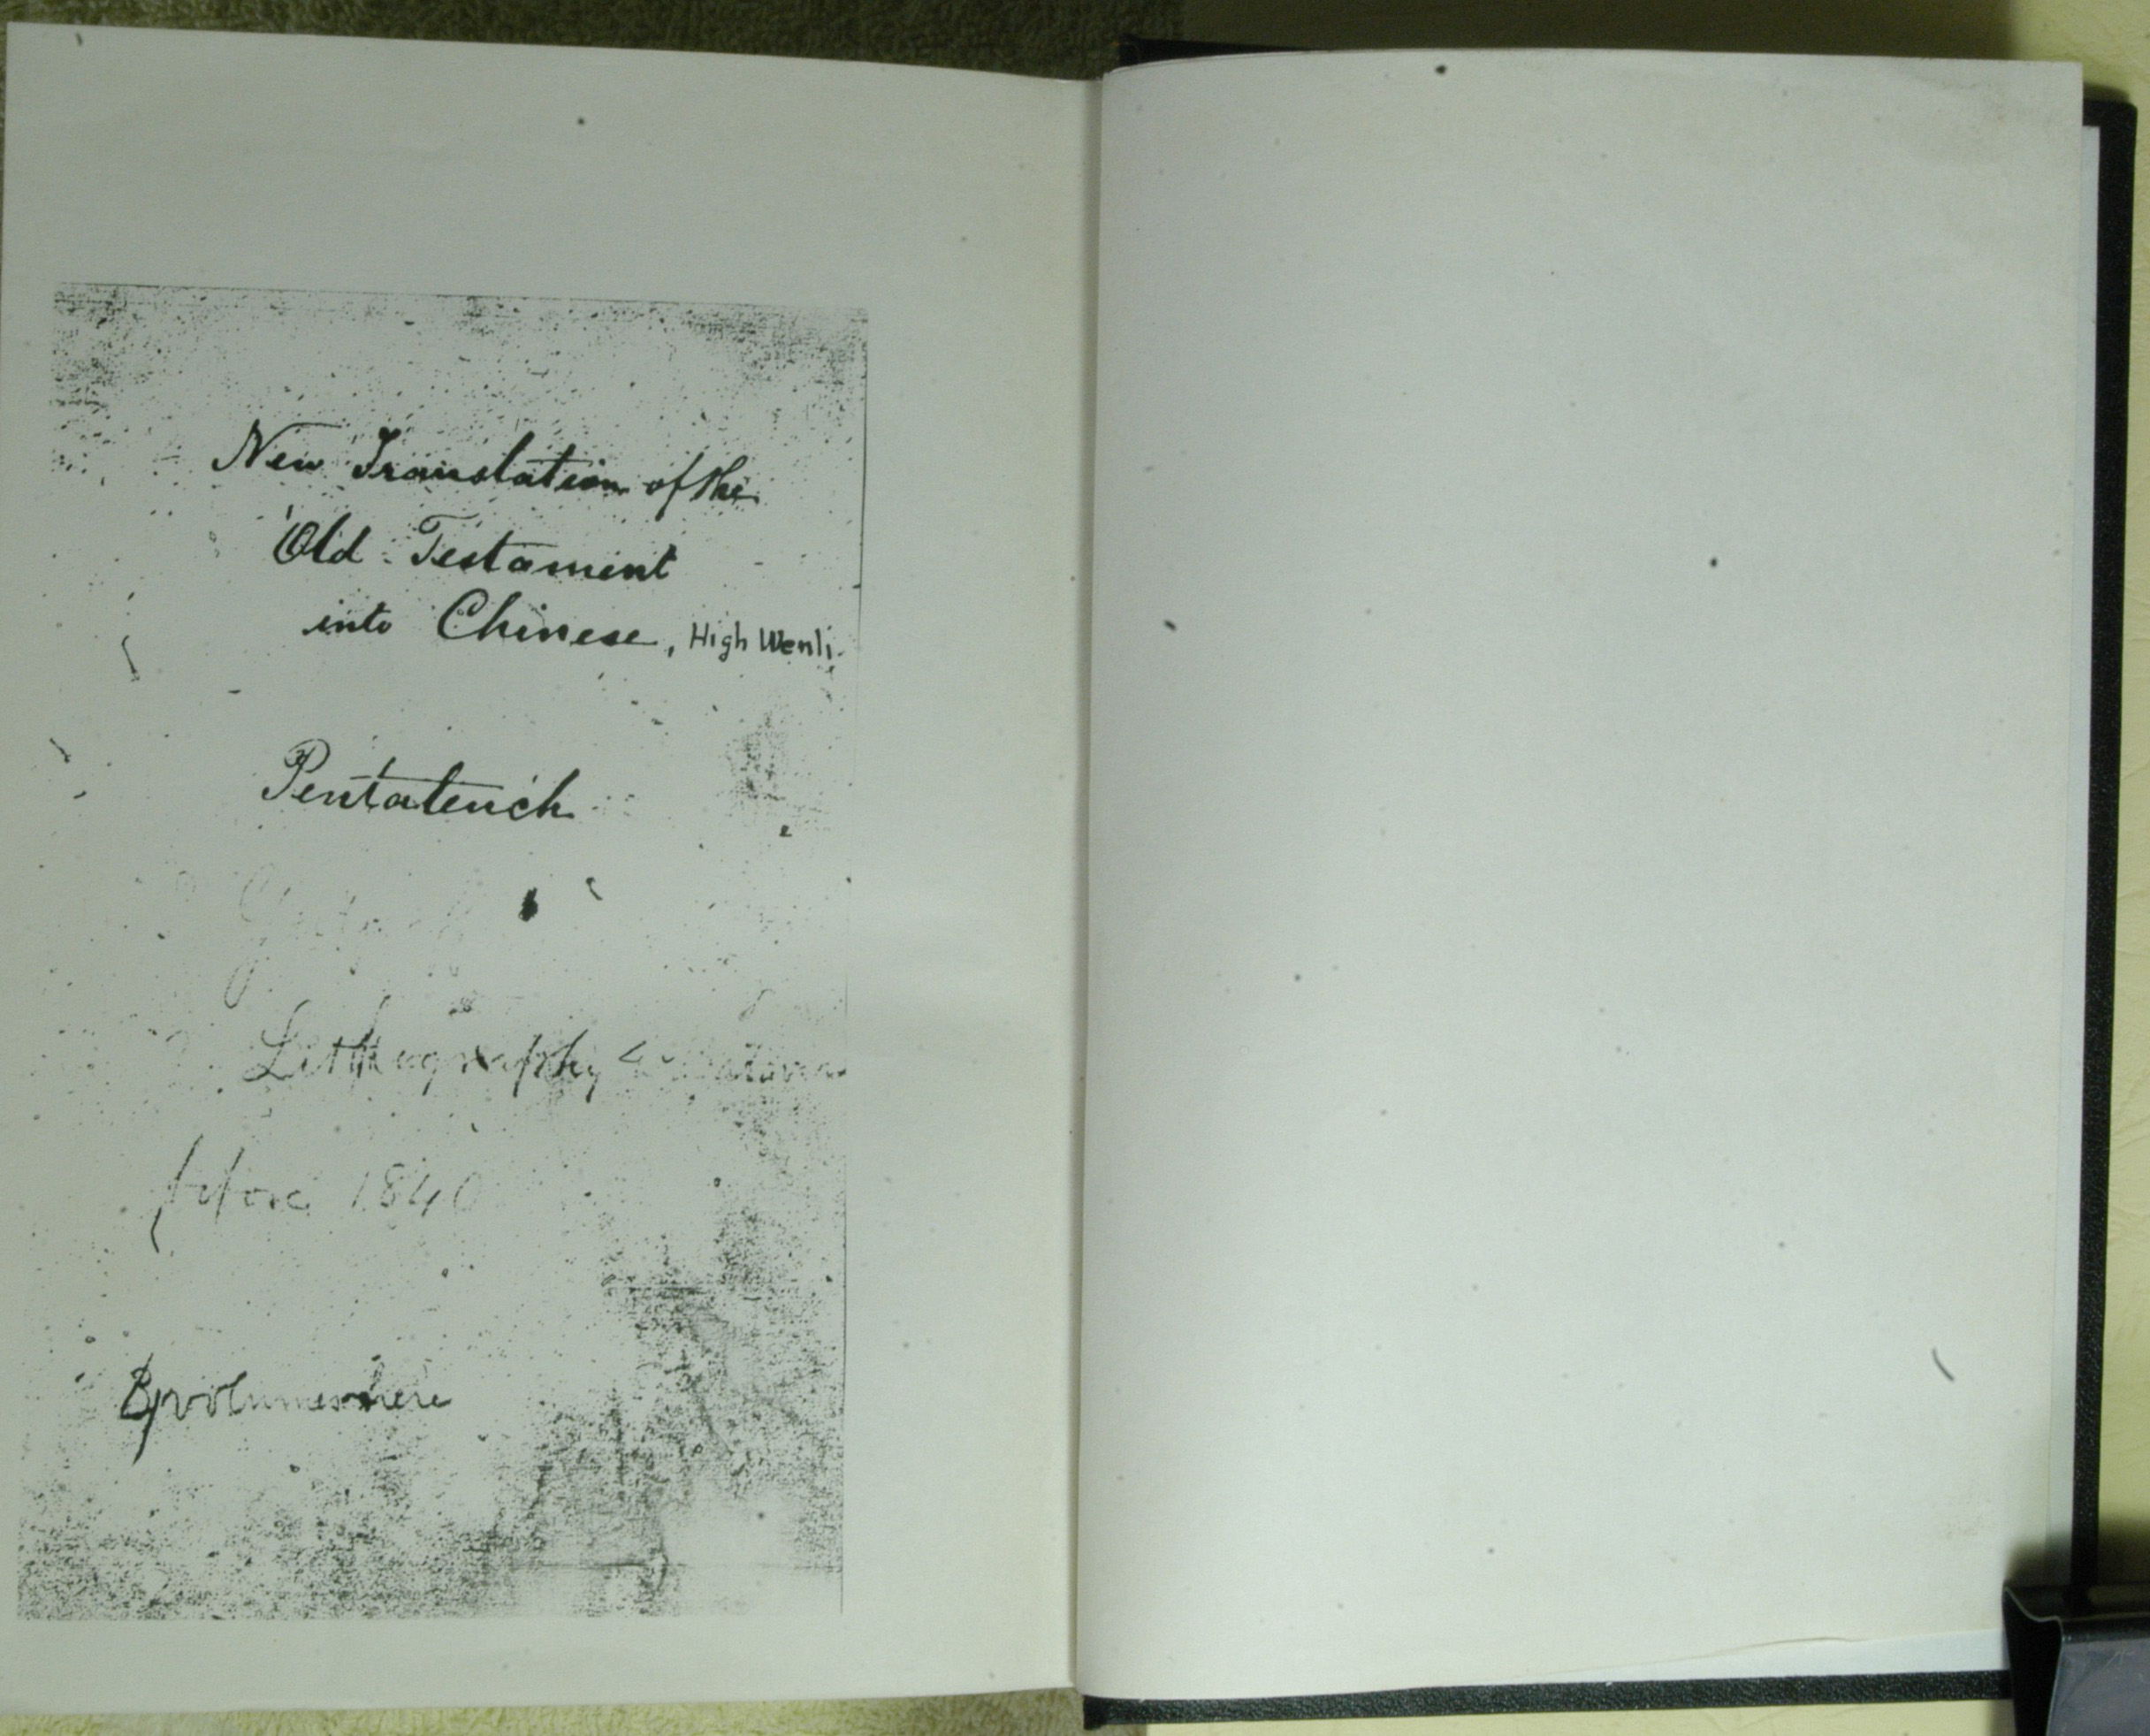 New Translation of the
Old Testament
into Chinese, High Wenli.
Pentateuch
Lithography
before 1840
volumes here